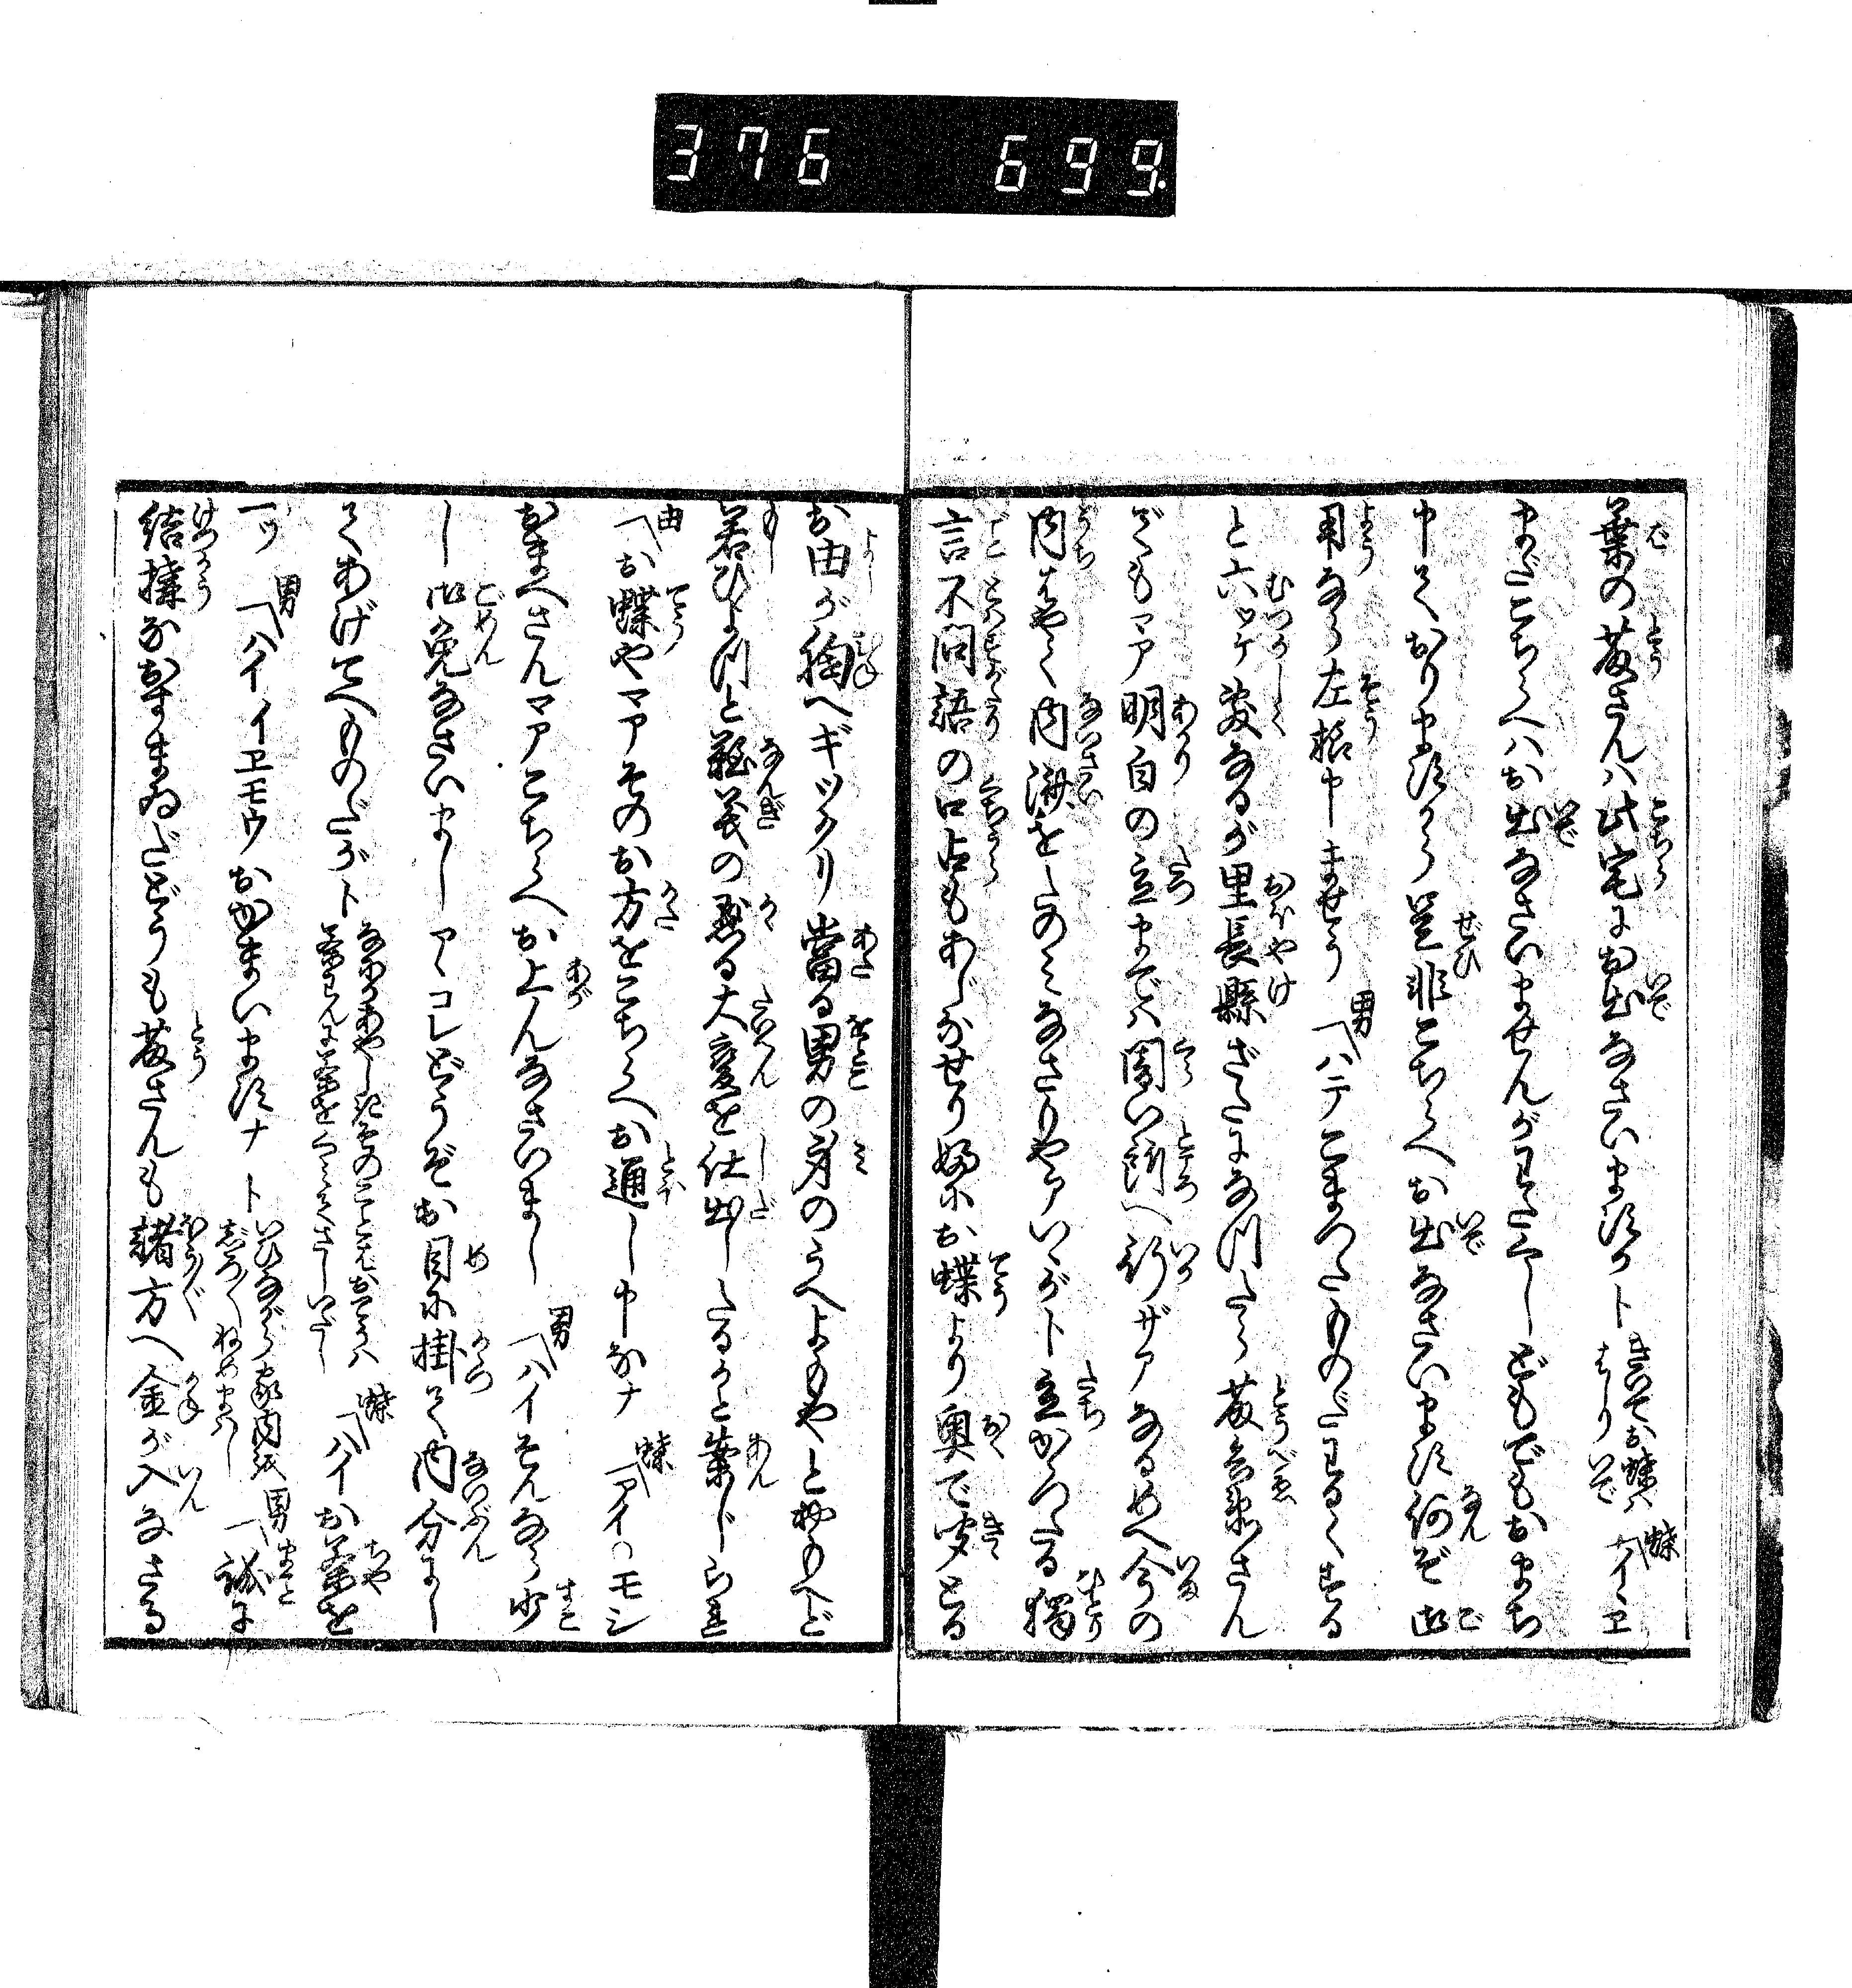 376 699
葉の藤さんハ此宅にお出なさいますかトきいてお蝶ハはしりいで 蝶「イヽヱ
まだこちらへハお出なさいませんがわたくしどもでもおまち
申ておりますから是非こちらへお出なさいます何ぞ御
用なら左様申しませう 男「ハテこまつたものだわるくする
と六ツケ敷なるが里長縣ざたになつたら藤兵衛さん
でもマア明白の立までハ闇い所へ行ザアなるめへ今の
内はやく内済をしたのみなさりやアいゝがト立かゝつたる獨
言不問語の口占もあじなせりふにお蝶より奥で聞とる
お由が胸へギツクリ當る男の身のうへよもやとおもへど
若ひよつと難義の懸る大変を仕出したるかと案じられ
由「お蝶やマアそのお方をこちらへお通し申なナ 蝶「アイ モシ
おまへさんマアこちらへお上んなさいまし 男「ハイそんなら少
し御免なさいまし アヽコレどうぞお目に掛て内分にし
てあげてへものだがト 蝶「ハイお茶を
一ツ 男「ハイイヱモウおかまいますナト いひながら家内をじろ〳〵ねめまはし 男「誠に
結搆なおすまゐだどうも藤さんも諸方へ金が入なさる